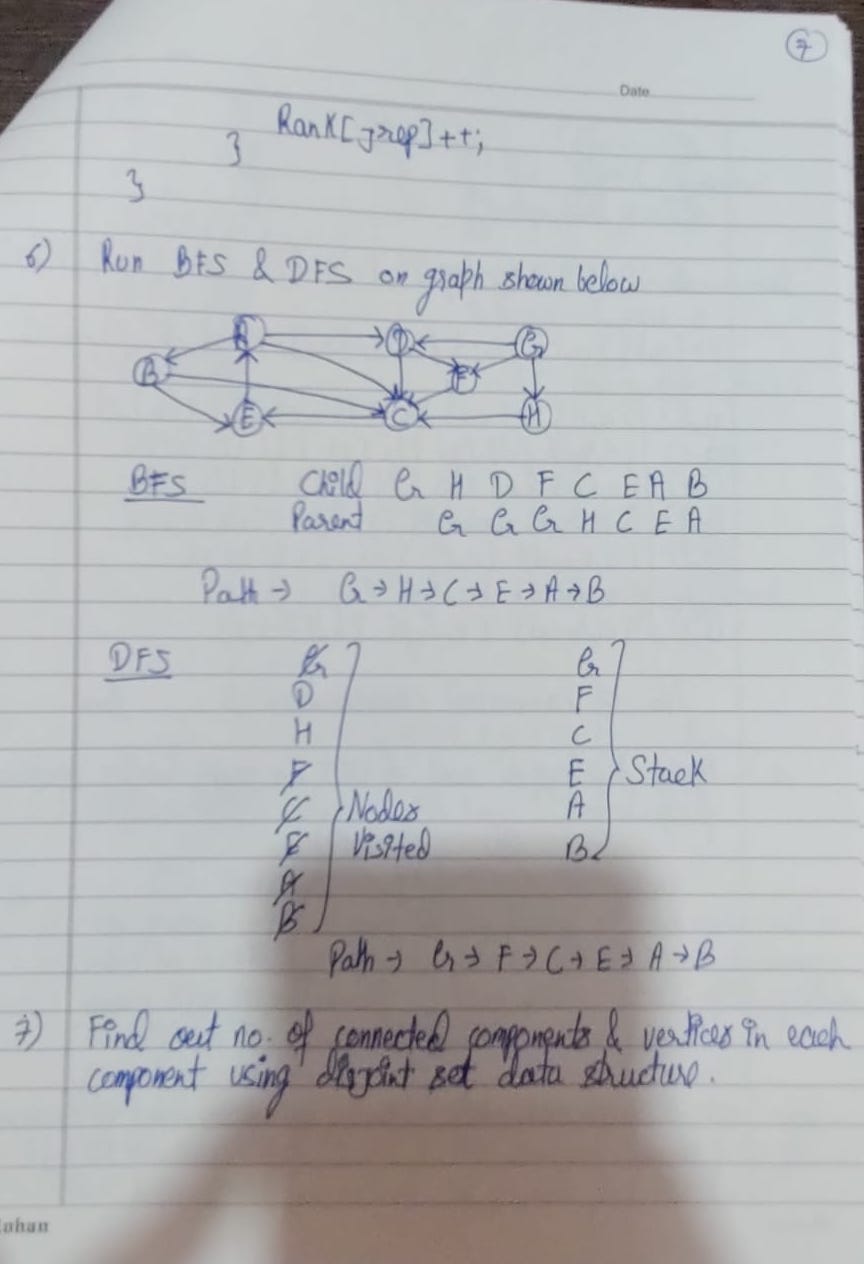 7
Date
Rank[jrep]++;
}
}
6) Run BFS & DFS on graph shown below
A D G
B F
E C H
BFS Child G H D F C E A B
Parent G G G H C E A
Path → G → H → C → E → A → B
DFS G G
D F
H C
F E Stack
C Nodes A
E Visited B
A
B
Path → G → F → C → E → A → B
7) Find out no. of connected components & vertices in each
component using disjoint set data structure.